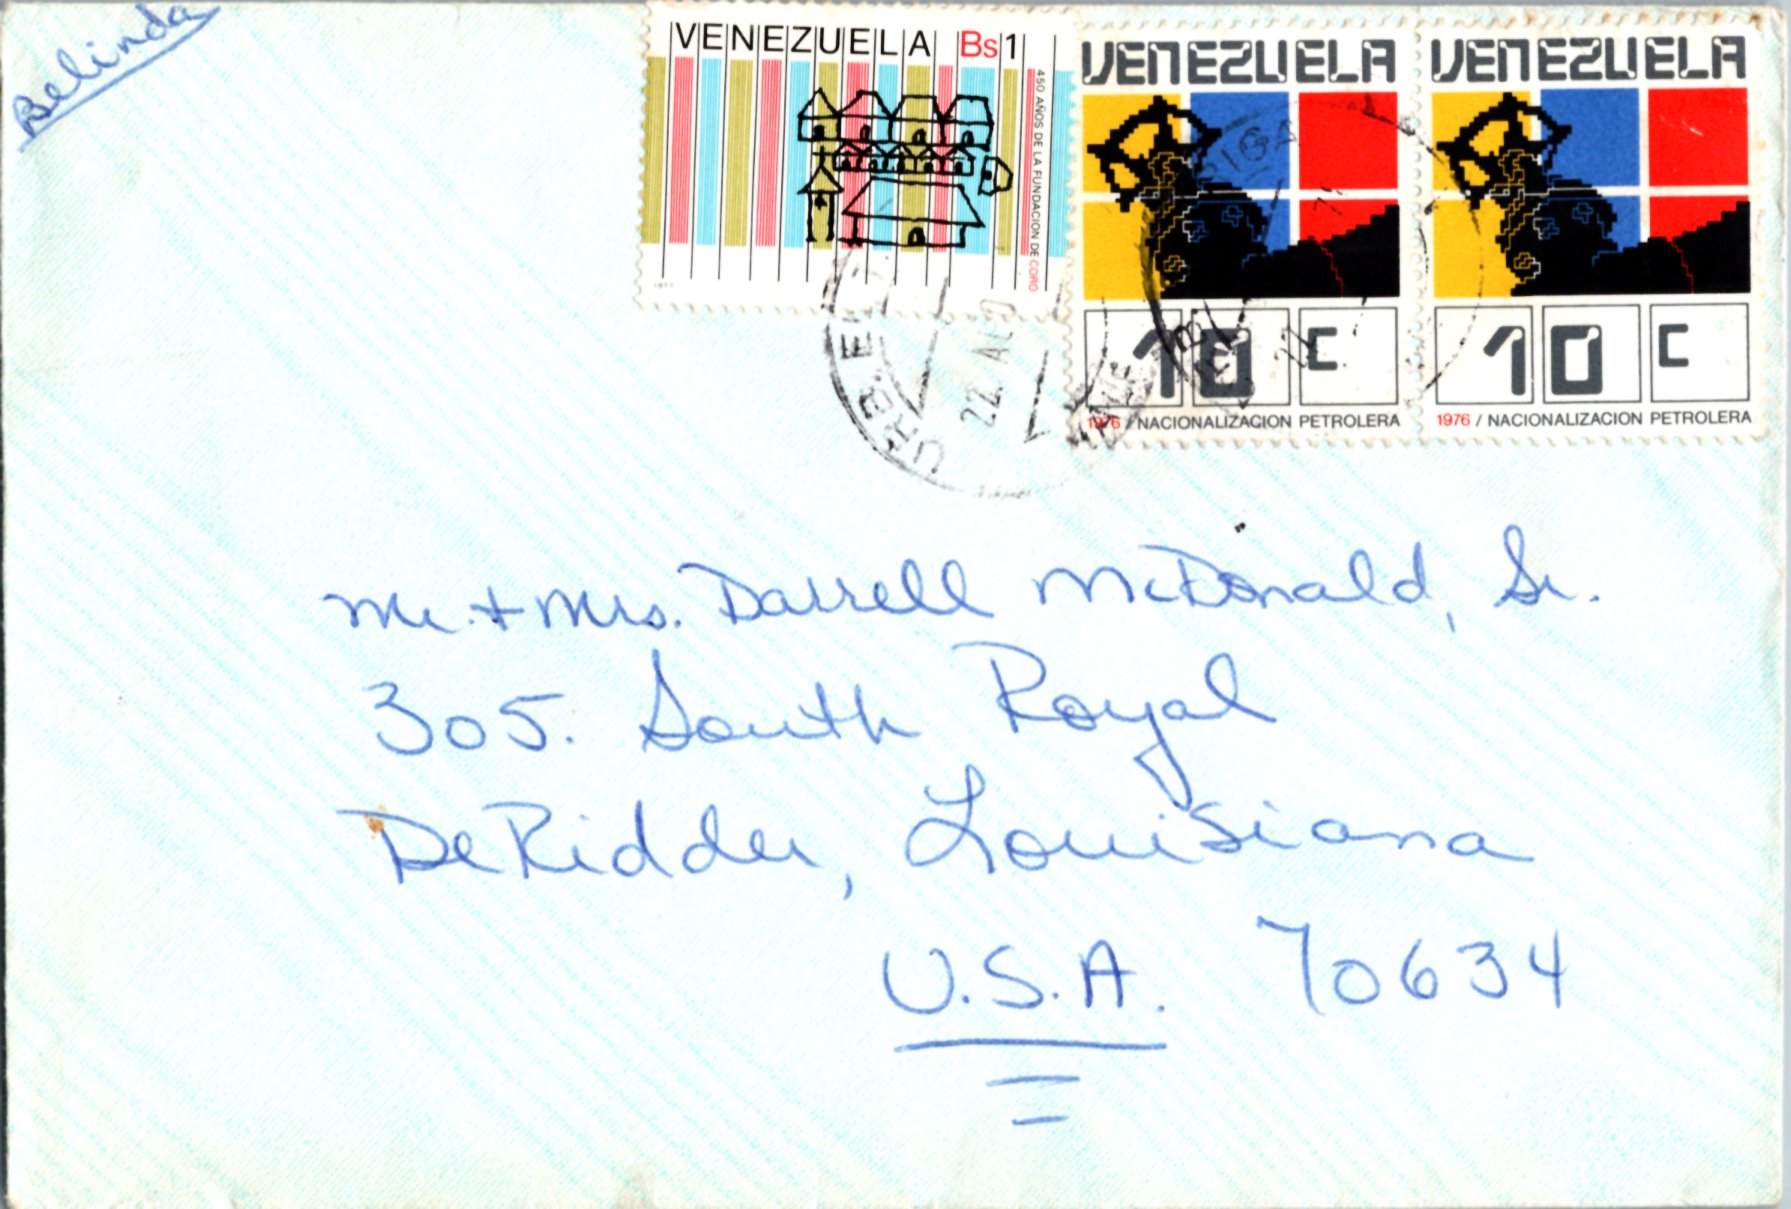 Belinda
VENEZUELA Bs1
450 AÑOS DE LA FUNDACION DE CORO
1977
VENEZUELA
10 c
1976 / NACIONALIZACION PETROLERA
VENEZUELA
10 c
1976 / NACIONALIZACION PETROLERA
URB. EL
22. AGO
Mr. + Mrs. Darrell McDonald, Sr.
305. South Royal
DeRidder, Louisiana
U.S.A. 70634